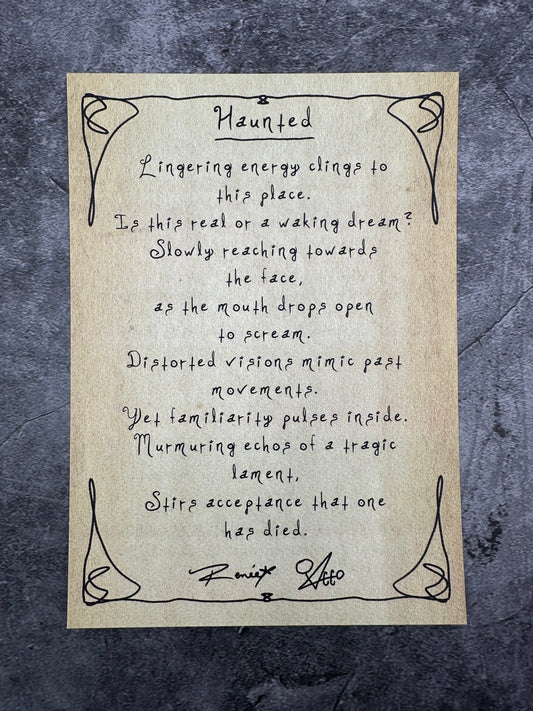 Haunted
Lingering energy clings to
this place.
Is this real or a waking dream?
Slowly reaching towards
the face,
as the mouth drops open
to scream.
Distorted visions mimic past
movements.
Yet familiarity pulses inside.
Murmuring echos of a tragic
lament,
Stirs acceptance that one
has died.